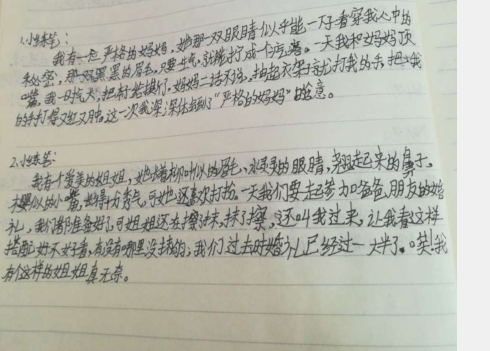 1.小练笔:
我有一位严格的妈妈,她那一双眼睛似乎能一下子看穿我心中的
秘密,那双黑黑的眉毛,只要生气,就能打成个疙瘩。一天我和妈妈顶
嘴,我一口抗天,把妈给惹恼了,妈妈二话不说,抬起衣架子就打我的手,把我
的手打得又红又肿。这一次我深深体会到了“严格的妈妈”的含意。
2.小练笔:
我有个爱美的姐姐,她长着柳叶似的眉毛,水灵灵的眼睛,翘起来的鼻子,
樱似的小嘴,她得十分秀气,可她还喜欢打扮。一天我们要去参加爸爸朋友的婚
礼,我们都准备好了,可姐姐还在擦沫,抹了擦,还叫我过来,让我看这样
搭配好不好看,有没有哪里没抹的,我们过去时婚礼已经过一大半了。唉!我
有个这样的姐姐真无奈。